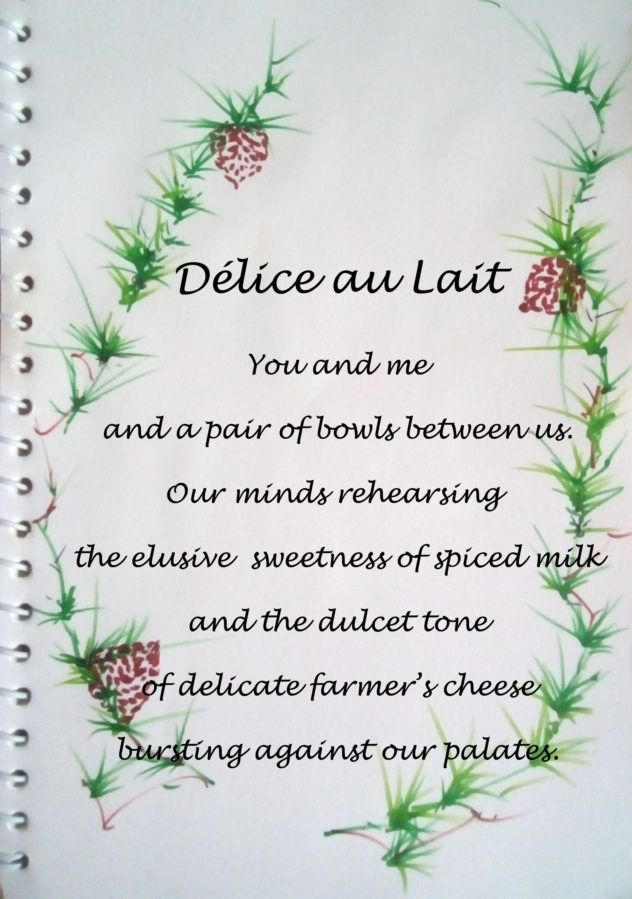 Délice au Lait
You and me
and a pair of bowls between us.
Our minds rehearsing
the elusive sweetness of spiced milk
and the dulcet tone
of delicate farmer’s cheese
bursting against our palates.